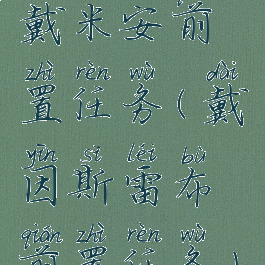 戴米安前
zhì rèn wù dài
置任务(戴
yīn sī léi bù
因斯雷布
qián zhì rèn wù
前置任务)